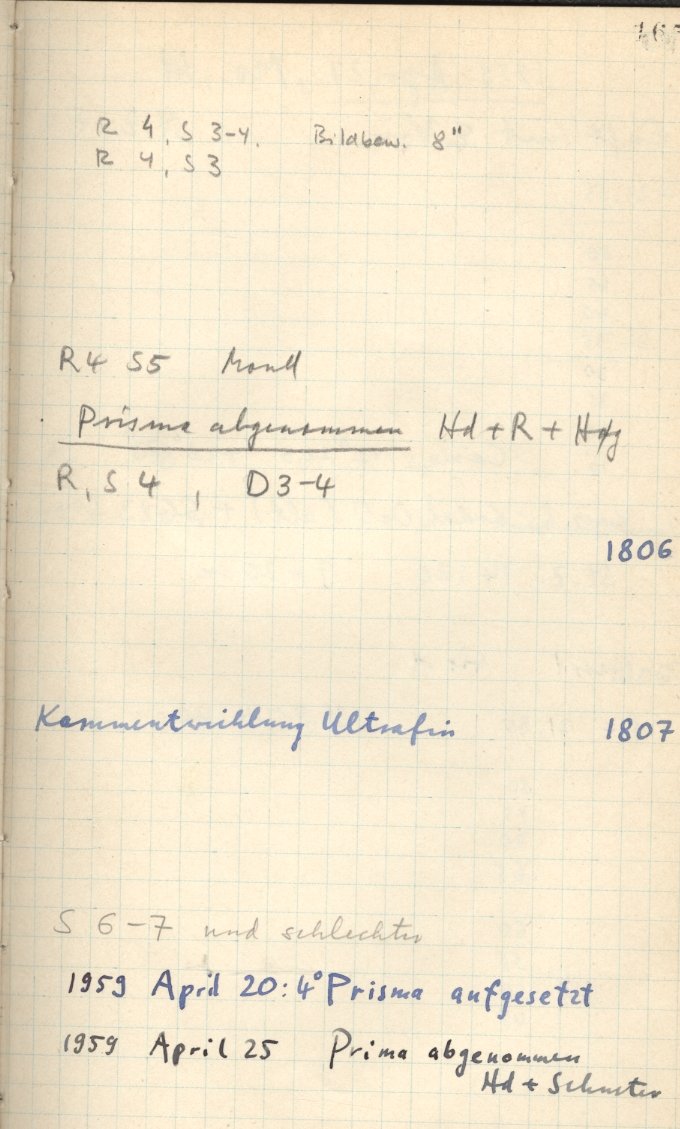 R 4, S 3-4. Bildbew. 8"
R 4, S 3
R4 S5 Mond
Prisma abgenommen Hd + R +
R, S 4, D3-4
1806
Kammentwicklung Ultrafin 1807
S 6-7 und schlechter
1959 April 20: 4° Prisma aufgesetzt
1959 April 25 Prima abgenommen
Hd + Schuster